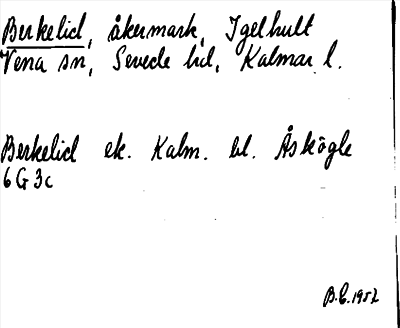 Berkelid, åkermark, Igelhult
Vena sn, Sevede hd, Kalmar l.
Berkelid ek. Kalm. bl. Åskögle
6G3c
B.E.1952